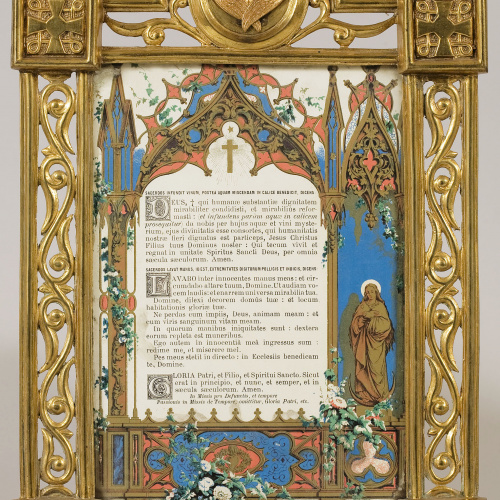 SACERDOS INFUNDIT VINUM, POSTEA AQUAM MISCENDAM IN CALICE BENEDICIT, DICENS
DEUS, † qui humanæ substantiæ dignitatem
mirabiliter condidisti, et mirabilius refor-
masti: et infundens parùm aquæ in calicem
prosequitur: da nobis per hujus aquæ et vini myste-
rium, ejus divinitatis esse consortes, qui humanitatis
nostræ fieri dignatus est particeps, Jesus Christus
Filius tuus Dominus noster: Qui tecum vivit et
regnat in unitate Spiritus Sancti Deus, per omnia
sæcula sæculorum. Amen.
SACERDOS LAVAT MANUS, EXTREMITATES DIGITORUM POLLICIS ET INDICIS, DICENS
LAVABO inter innocentes manus meas: et cir-
cumdabo altare tuum, Domine. Ut audiam vo-
cem laudis: et enarrem universa mirabilia tua.
Domine, dilexi decorem domûs tuæ: et locum
habitationis gloriæ tuæ.
Ne perdas cum impiis, Deus, animam meam: et
cum viris sanguinum vitam meam.
In quorum manibus iniquitates sunt: dextera
eorum repleta est muneribus.
Ego autem in innocentiâ meâ ingressus sum:
redime me, et miserere meî.
Pes meus stetit in directo: in Ecclesiis benedicam
te, Domine.
GLORIA Patri, et Filio, et Spiritui Sancto. Sicut
erat in principio, et nunc, et semper, et in
sæcula sæculorum. Amen.
In Missis pro Defunctis, et tempore
Passionis in Missis de Tempore, omittitur, Gloria Patri, etc.